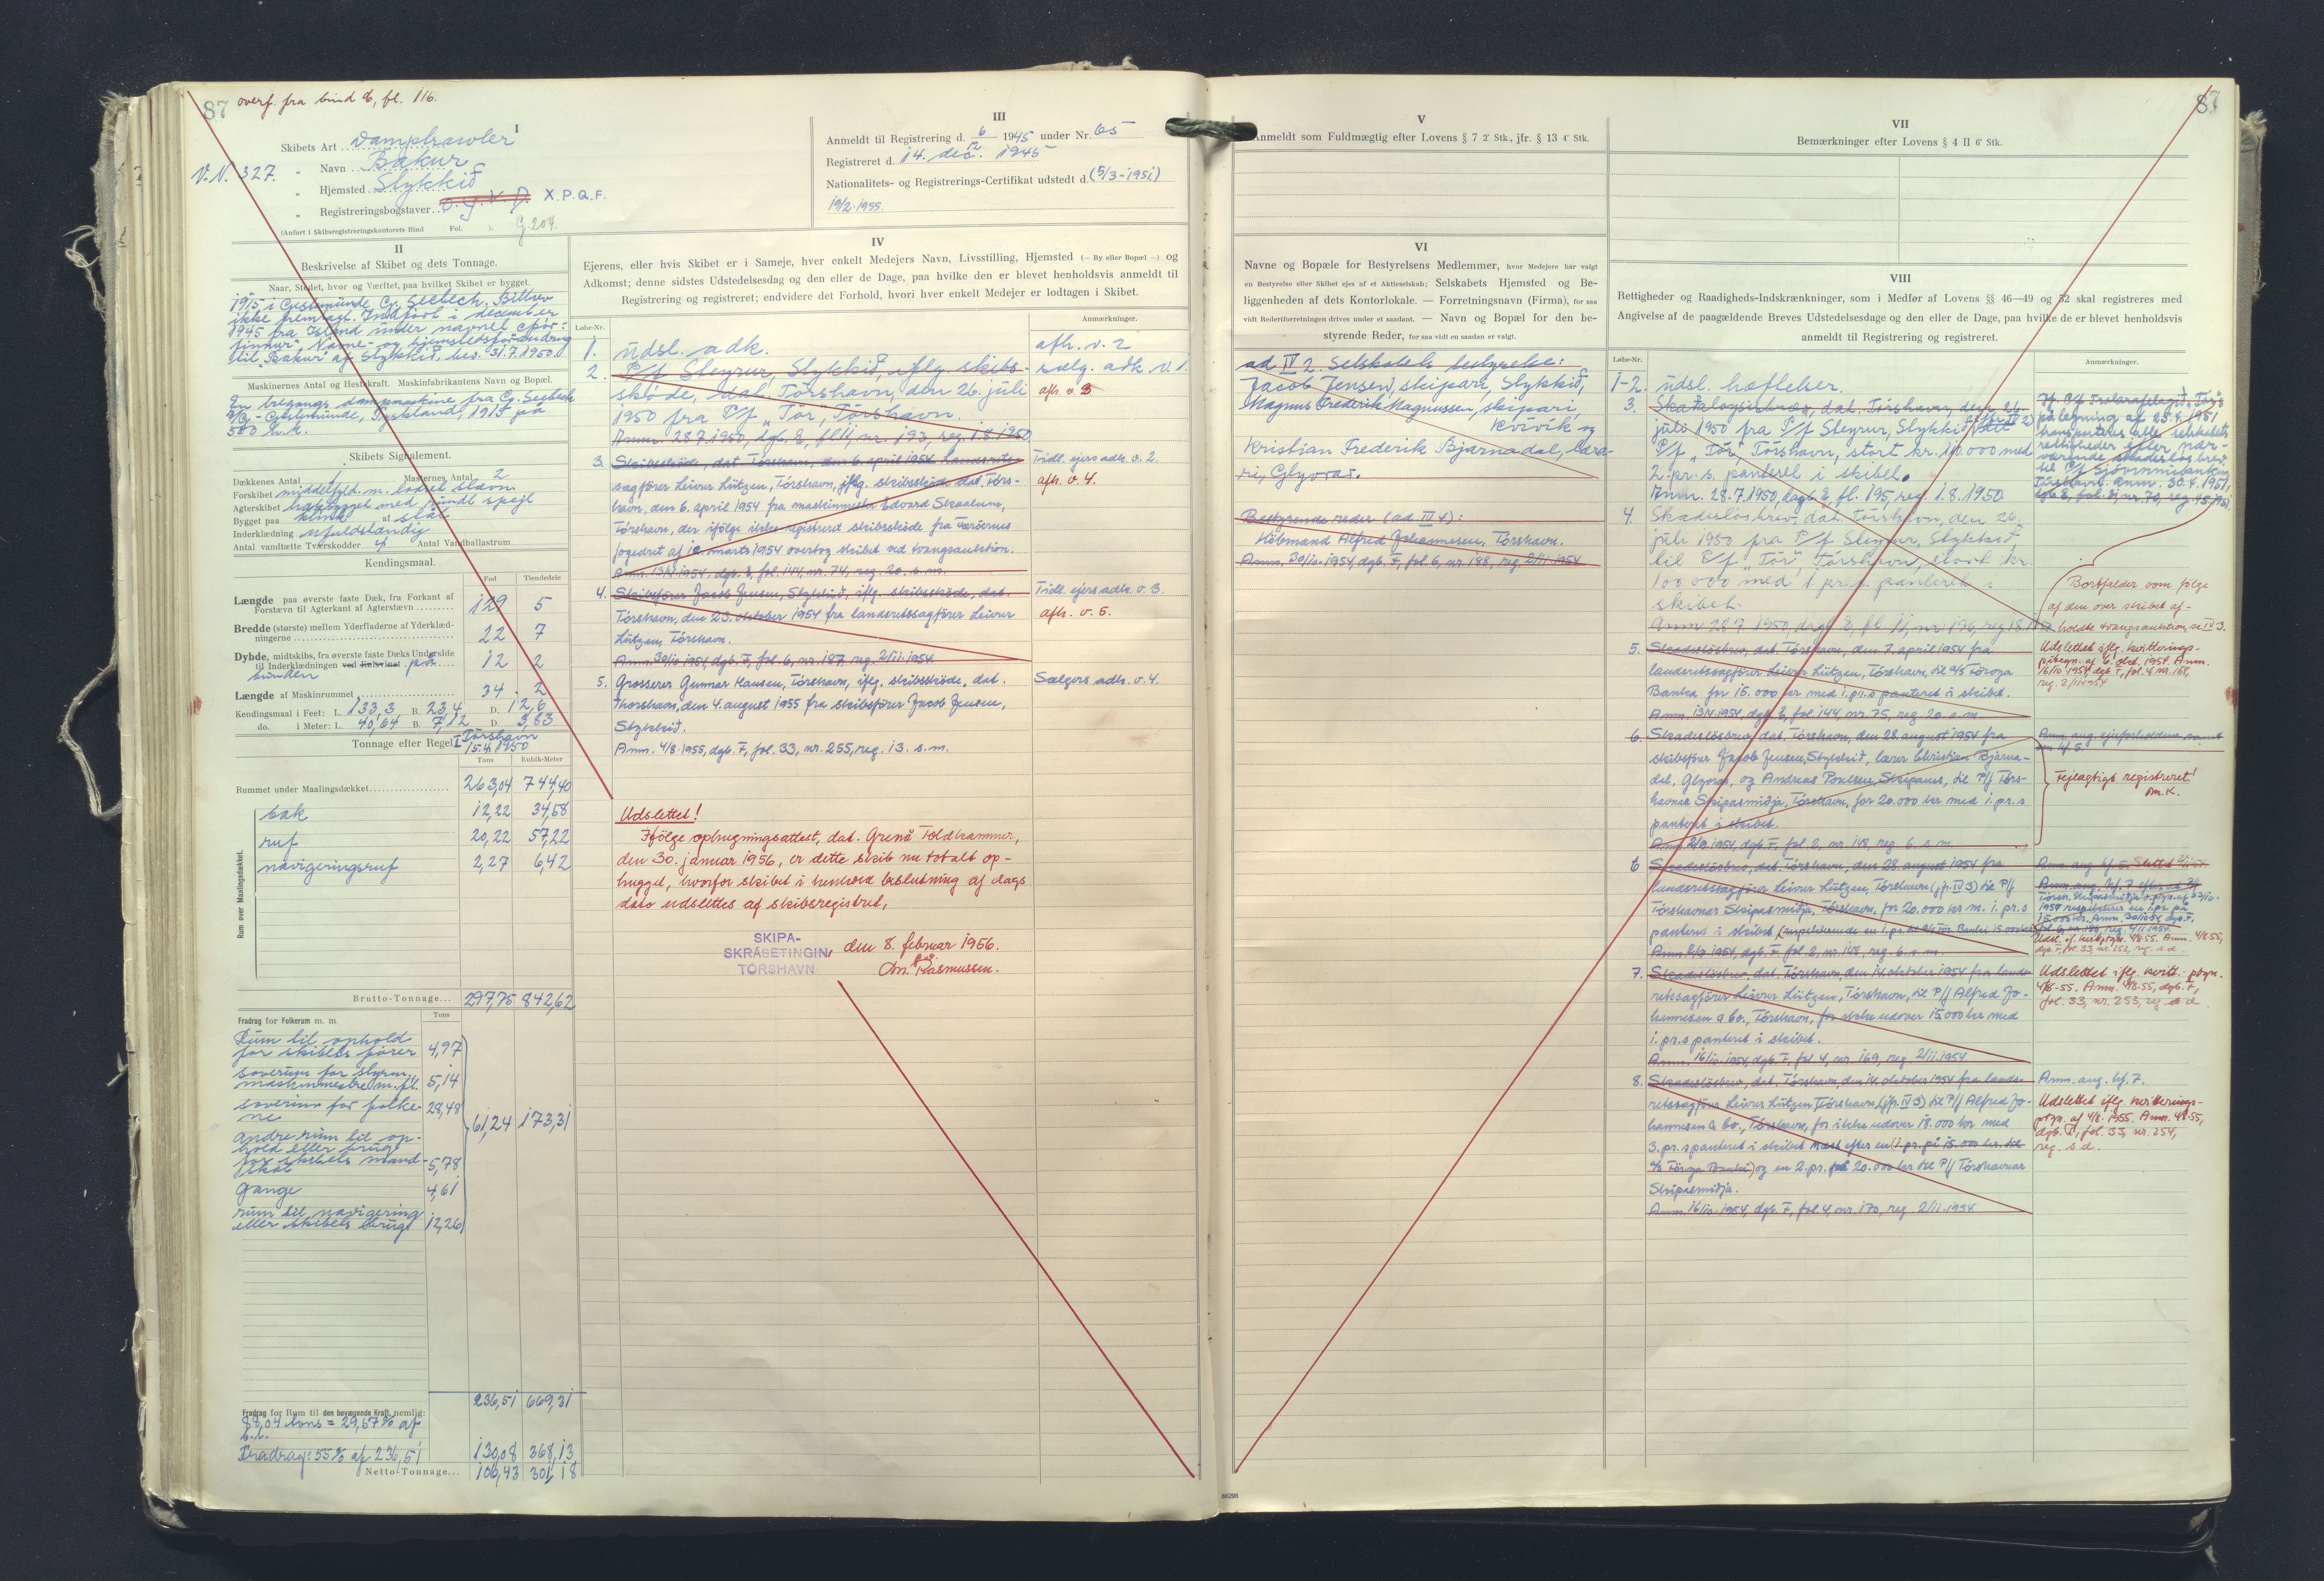 87 overf. fra bind E, fl. 116.
I
Skibets Art Damptrawler
V.N. 327. " Navn Bakur
" Hjemsted Stykkið
" Registreringsbogstaver X.P.Q.F.
(Anført i Skibsregistreringskontorets Bind Fol. ). G 204.
III
Anmeldt til Registrering d. 6/12 1945 under Nr. 65
Registreret d. 14. dec. 1945
Nationalitets- og Registrerings-Certifikat udstedt d. (5/3-1951)
19/2-1955.
II
Beskrivelse af Skibet og dets Tonnage.
Naar, Stedet, hvor og Værftet, paa hvilket Skibet er bygget.
1915 i Gestemünde, G. Seebech. Bilbrev
ikke fremlagt. Indført i december
1945 fra Island under navnet
Navne- og hjemstedsforandring
til "Bakur" af Stykkið, bev. 31.7.1950.
Maskinernes Antal og Hestekraft. Maskinfabrikantens Navn og Bopæl.
En tregangs dampmaskine fra G. Seebeck
A/G - Gestemünde, Tyskland, 1915 på
500 h.k.
Skibets Signalement.
Dækkenes Antal 1 Masternes Antal 2
Forskibet middelfyld. m. lodret stævn
Agterskibet hækbygget med rundt spejl
Bygget paa klink af stål
Inderklædning ufuldstændig
Antal vandtætte Tværskodder 4 Antal Vandballastrum
Kendingsmaal.
Fod Tiendedele
Længde paa øverste faste Dæk, fra Forkant af
Forstævn til Agterkant af Agterstævn 129 5
Bredde (største) mellem Yderfladerne af Yderklæd-
ningerne 22 7
Dybde, midtskibs, fra øverste faste Dæks Underside
til Inderklædningen ved Kølsvinet på 12 2
bunden
Længde af Maskinrummet 34 2
Kendingsmaal i Feet: L. 133,3 B. 23,4 D. 12,6
do. i Meter: L. 40,64 B. 7,12 D. 3,83
Tonnage efter Regel I Tórshavn
15.4.1950
Tons Kubik-Meter
Rummet under Maalingsdækket 263,04 744,40
Rum over Maalingsdækket.
bak 12,22 34,58
ruf 20,22 57,22
navigeringsruf 2,27 6,42
Brutto-Tonnage 297,75 842,62
Fradrag for Folkerum m. m. Tons
Rum til ophold
for skibets fører 4,97
soverum for styrm.
maskinmestre m. fl. 5,14
soverum for folke-
ne 28,48
61,24 173,31
andre rum til op-
hold eller brug
for skibets mand-
skab 5,78
gange 4,61
rum til navigering
eller skibets brug 12,26
236,51 669,31
Fradrag for Rum til den bevægende Kraft, nemlig:
88,04 tons = 29,57% af
b.t.
Fradrag: 55% af 236,51 130,08 368,13
Netto-Tonnage 106,43 301,18
IV
Ejerens, eller hvis Skibet er i Sameje, hver enkelt Medejers Navn, Livsstilling, Hjemsted (— By eller Bopæl —) og
Adkomst; denne sidstes Udstedelsesdag og den eller de Dage, paa hvilke den er blevet henholdsvis anmeldt til
Registrering og registreret; endvidere det Forhold, hvori hver enkelt Medejer er lodtagen i Skibet.
Løbe-Nr. Anmærkninger.
1. udsl. adk. afh. v. 2
2. P/f Steyrur, Stykkið, iflg. skibs- sælg. adk v. 1.
skøde, dat. Tórshavn, den 26. juli afh. v. 3
1950 fra P/f "Tór", Tórshavn.
Anm. 28.7.1950, dgb. E, fl 11, nr. 193, reg. 1.8.1950.
3. Skibsskøde, dat. Tórshavn, den 6. april 1954. Landsrets- Tidl. ejers adk. v. 2.
sagfører Leivur Lützen, Tórshavn, iflg. skibsskøde dat. Tórs- afh. v. 4.
havn, den 6. april 1954 fra maskinmester Edvard Skaalum,
Tórshavn, der ifølge ikke registreret skibsskøde fra Færøernes
fogedret af 12. marts 1954 overtog skibet ved tvangsauktion.
Anm. 13/4 1954, dgb. E, fol. 144, nr. 74, reg. 20. s.m.
4. Skibsfører Jacob Jensen, Stykkið, iflg. skibsskøde, dat. Tidl. ejers adk. v. 3.
Tórshavn, den 23. oktober 1954 fra landsretssagfører Leivur afh. v. 5.
Lützen, Tórshavn.
Anm. 30/10 1954, dgb. F, fol. 6, nr. 187, reg. 2/11 1954.
5. Grosserer Gunnar Hansen, Tórshavn, iflg. skibsskøde, dat. Sælgers adk. v. 4.
Thorshavn, den 4. august 1955 fra skibsfører Jacob Jensen,
Stykkið.
Anm. 4/8 1955, dgb. F, fol. 33, nr. 255, reg. 13. s.m.
Udslettet!
Ifølge ophugningsattest, dat. Grenå Toldkammer,
den 30. januar 1956, er dette skib nu totalt op-
hugget, hvorfor skibet i henhold beslutning af dags
dato udslettes af skibsregistret.
SKIPA-
SKRÁSETINGIN, den 8. februar 1956.
TÓRSHAVN Rasmussen.
V
Anmeldt som Fuldmægtig efter Lovens § 7 2' Stk., jfr. § 13 4' Stk.
VI
Navne og Bopæle for Bestyrelsens Medlemmer, hvor Medejere har valgt
en Bestyrelse eller Skibet ejes af et Aktieselskab; Selskabets Hjemsted og Be-
liggenheden af dets Kontorlokale. — Forretningsnavn (Firma), for saa
vidt Rederiforretningen drives under et saadant. — Navn og Bopæl for den be-
styrende Reder, for saa vidt en saadan er valgt.
ad IV 2. Selskabets bestyrelse:
Jacob Jensen, skipari, Stykkið,
Magnus Frederik Magnussen, skipari,
Kvívík og
Kristian Frederik Bjarnadal, læra-
ri, Glyvrar.
Bestyrende reder (ad IV 4):
Købmand Alfred Johannesen, Tórshavn.
Anm. 30/10-1954, dgb. F, fol 6, nr. 188, reg. 2/11 1954
87
VII
Bemærkninger efter Lovens § 4 II 6' Stk.
VIII
Rettigheder og Raadigheds-Indskrænkninger, som i Medfør af Lovens §§ 46—49 og 52 skal registreres med
Angivelse af de paagældende Breves Udstedelsesdage og den eller de Dage, paa hvilke de er blevet henholdsvis
anmeldt til Registrering og registreret.
Løbe-Nr. Anmærkninger.
1-2. udsl. hæftelser.
3. Skadesløsbrev, dat. Tórshavn, den 26.
juli 1950 fra P/f Steyrur, Stykkið (adk. IV 2)
P/f "Tór", Tórshavn, stort kr. 110.000 med
2. pr. s. panteret i skibet.
Anm. 28.7.1950, dagb. E, fl. 195, reg. 1.8.1950
påtegning af 25.4.1951
transporteres alle selskabets
rettigheder efter nær-
værende skadesløsbrev
til P/f Sjóvinnubankin,
Tórshavn. Anm. 30.4.1951,
4. Skadesløsbrev, dat. Tórshavn, den 26.
juli 1950 fra P/f Steyrur, Stykkið
til P/f "Tór" Tórshavn, stort kr.
100.000 med 1. pr. s. panteret i
skibet.
Anm 28.7 1950, dagb. E, fl. 11, nr 196, reg 1.8.1950
Bortfalder som følge
af den over skibet af-
holdte tvangsauktion, se IV 3.
5. Skadesløsbrev, dat. Tórshavn, den 7. april 1954 fra
landsretssagfører Leivur Lützen, Tórshavn, til A/S Føroya
Banka for 15.000 kr med 1. pr. s panteret i skibet.
Anm. 13/4 1954, dgb. E, fol 144, nr. 75, reg. 20. s.m.
Udslettet iflg. kvitterings-
påtegn. af 6. okt. 1954. Anm.
16/10 1954, dgb. F, fol. 4 nr. 168,
reg. 2/11-1954
6. Skadesløsbrev, dat. Tórshavn, den 28. august 1954 fra
skibsfører Jacob Jensen, Stykkið, lærer Christian Bjarna-
dal, Glyvrar, og Andreas Poulsen, Skipanes, til P/f Tórs-
havnar Skipasmiðja, Tórshavn, for 20.000 kr med 1. pr. s
panteret i skibet.
Anm. 2/9 1954, dgb. F, fol. 2, nr. 148, reg. 6. s.m.
Anm. ang. ejerforholdene samt
Fejlagtigt registreret!
6 Skadesløsbrev, dat. Tórshavn, den 28. august 1954 fra
landsretssagfører Leivur Lützen, Tórshavn, (jfr. IV 3) til P/f
Tórshavnar Skipasmiðja, Tórshavn, for 20.000 kr m. 1. pr. s
Anm. 2/9 1954, dgb. F, fol. 2, nr. 148, reg. 6. s.m.
7. Skadesløsbrev, dat. Tórshavn, den 14. oktober 1954 fra lands-
retssagfører Leivur Lützen, Tórshavn, til P/f Alfred Jo-
hannesen & Co., Tórshavn, for ikke udover 15.000 kr med
1. pr. s panteret i skibet.
Anm. 16/10. 1954, dgb. F, fol 4, nr. 169, reg. 2/11.1954
Udslettet iflg. kvitt. ptgn.
4/8-55. Anm. 4/8.55, dgb. F,
fol. 33, nr. 253, reg s d.
8. Skadesløsbrev, dat. Tórshavn, den 14. oktober 1954 fra lands-
retssagfører Leivur Lützen, Tórshavn, (jfr. IV 3) til P/f Alfred Jo-
hannesen & Co., Tórshavn, for ikke udover 18.000 kr med
3. pr. s panteret i skibet næst efter en (1. pr. på 15.000 kr. til
A/S Føroya Banki) og en 2. pr. på 20.000 kr til P/f Tórshavnar
Skipasmiðja.
Anm. 16/10. 1954, dgb. F, fol 4, nr. 170, reg. 2/11.1954
Anm. ang. hf. 7.
Udslettet iflg. kvitterings-
ptgn. af 4/8-1955. Anm. 4/8.55,
dgb. F, fol. 33, nr. 254,
reg. s d.
88298